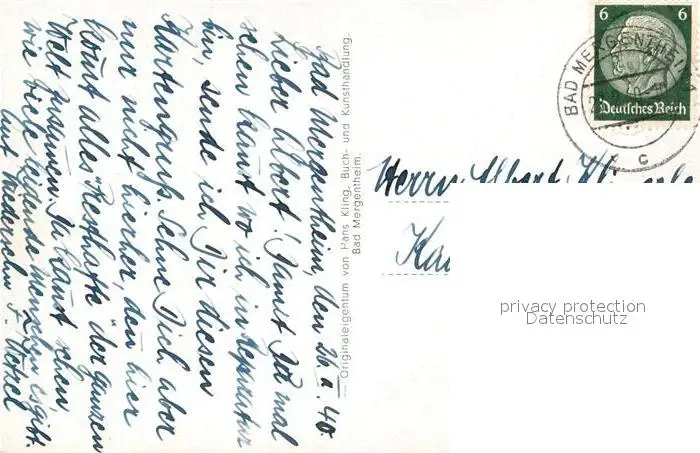 Bad Mergentheim, den 26.II.40.
Lieber Albert! Damit Du mal
sehen kannst wo ich in Reparatur
bin, sende ich Dir diesen
Kartengruß. Sehne Dich aber
nur nicht hierher, denn hier
kommt alles "Presthafte" der ganzen
Welt zusammen. Da kannst sehen
wie viele leidende Menschen es gibt.
Auf Wiedersehn F.
Originaleigentum von Hans Kling, Buch- und Kunsthandlung.
Bad Mergentheim.
6 6
Deutsches Reich
BAD MERGENTHEIM
c
Herrn Albert
privacy protection
Datenschutz